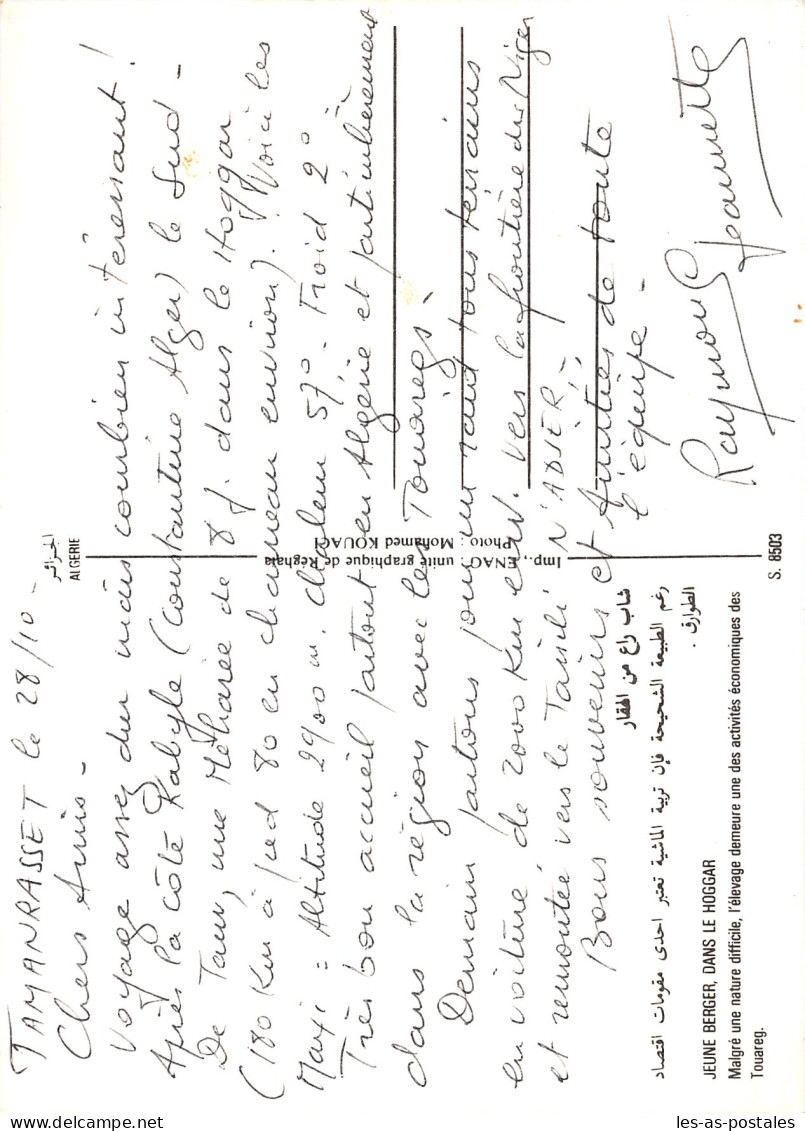 TAMANRASSET le 28/10 -
Chers Amis -
Voyage assez dur mais combien intéressant !
Après la côte Kabyle (Constantine Alger) le Sud -
De Tam, une Méharée de 8 j. dans le Hoggar
(180 Km à pied 80 en chameau environ). Voici les
Maxi : Altitude 2900 m. chaleur 57° - Froid 2°
Très bon accueil partout en Algérie et particulièrement
dans la région avec les Touaregs -
Demain partons pour un raid tous terrains
en voiture de 2000 Km env. vers la frontière du Niger
et remontée vers le Tassili N'ADJER, -
Bons souvenirs et Amitiés de toute
l'équipe -
Raymond Jeannette
الجزائر
ALGERIE
Imp., ENAG, unité graphique de Réghaia
Photo : Mohamed KOUACI
شاب راع من الهقار
رغم الطبيعة الشحيحة فإن تربية الماشية تعتبر احدى مقومات اقتصاد
الطوارق .
JEUNE BERGER, DANS LE HOGGAR
Malgré une nature difficile, l'élevage demeure une des activités économiques des
Touareg.
S. 8503
les-as-postales